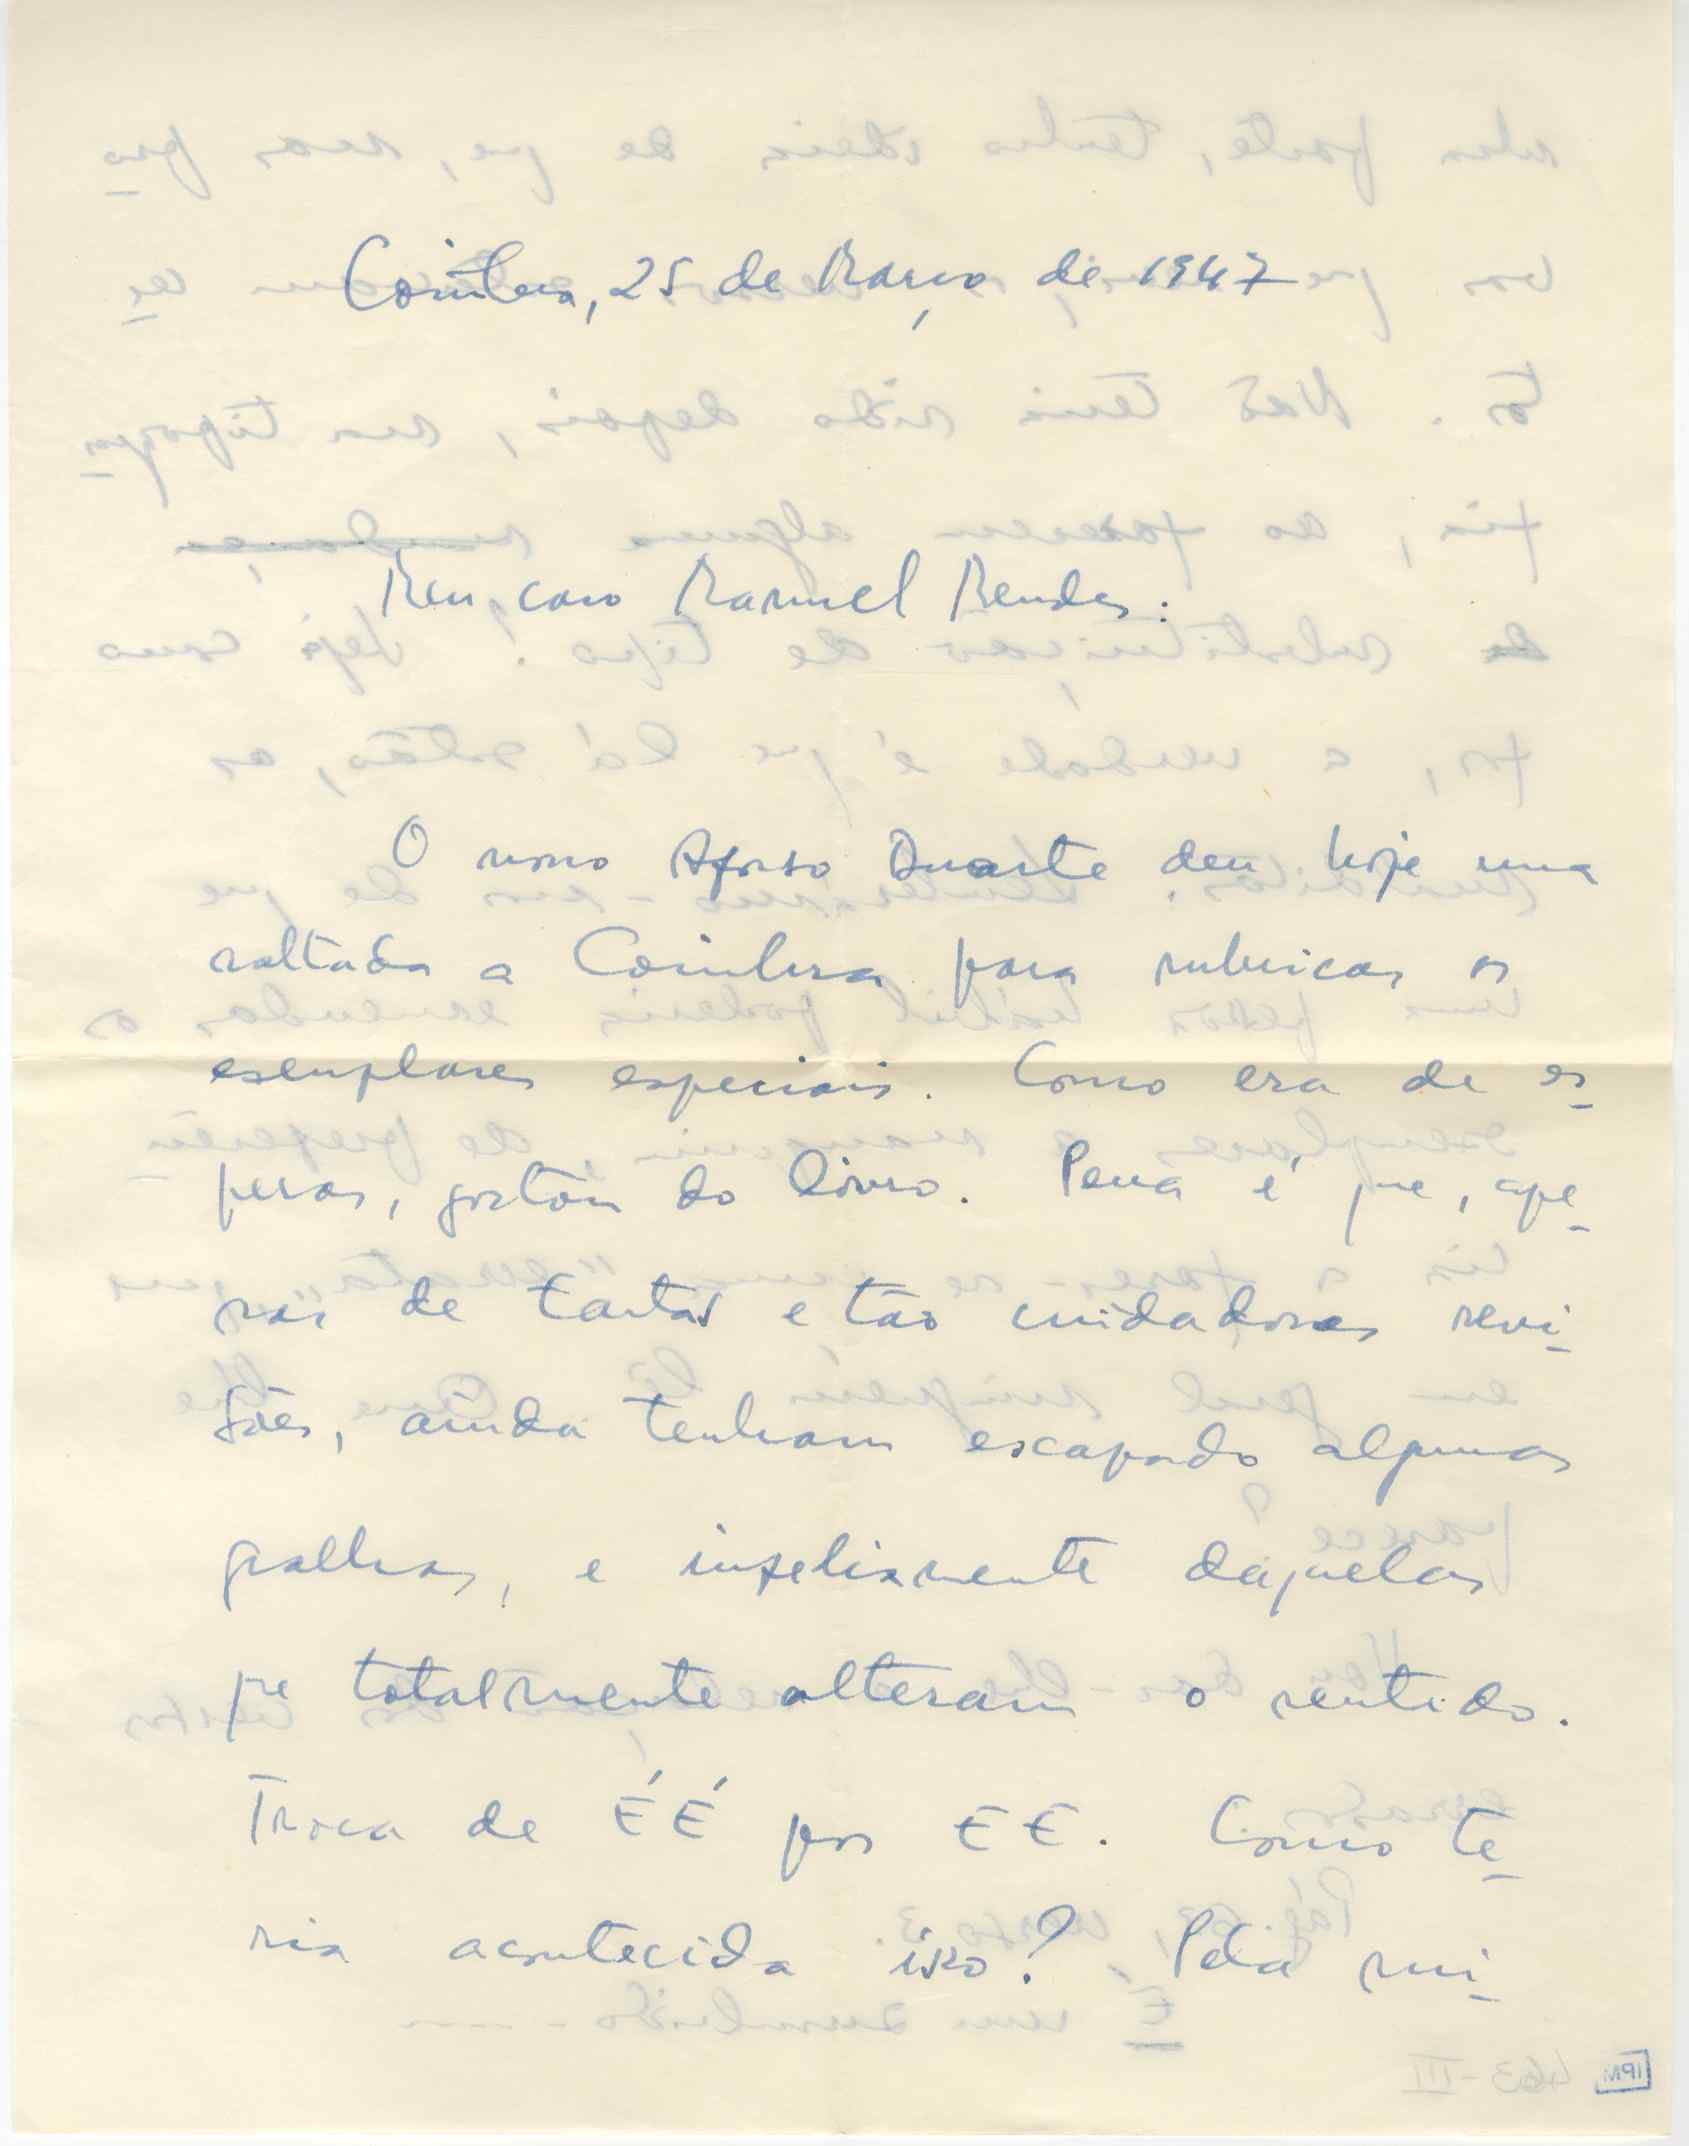 Coimbra, 25 de Março de 1947
Meu caro Manuel Mendes:
O nosso Afonso Duarte deu hoje uma
saltada a Coimbra para rubricar os
exemplares especiais. Como era de es-
perar, gostou do livro. Pena é que, ape-
sar de tantas e tão cuidadosas revi-
sões, ainda tenham escapado algumas
gralhas, e infelizmente daquelas
que totalmente alteram o sentido.
Troca de ÉÉ por EE. Como te-
ria acontecido isso? Pela mi-